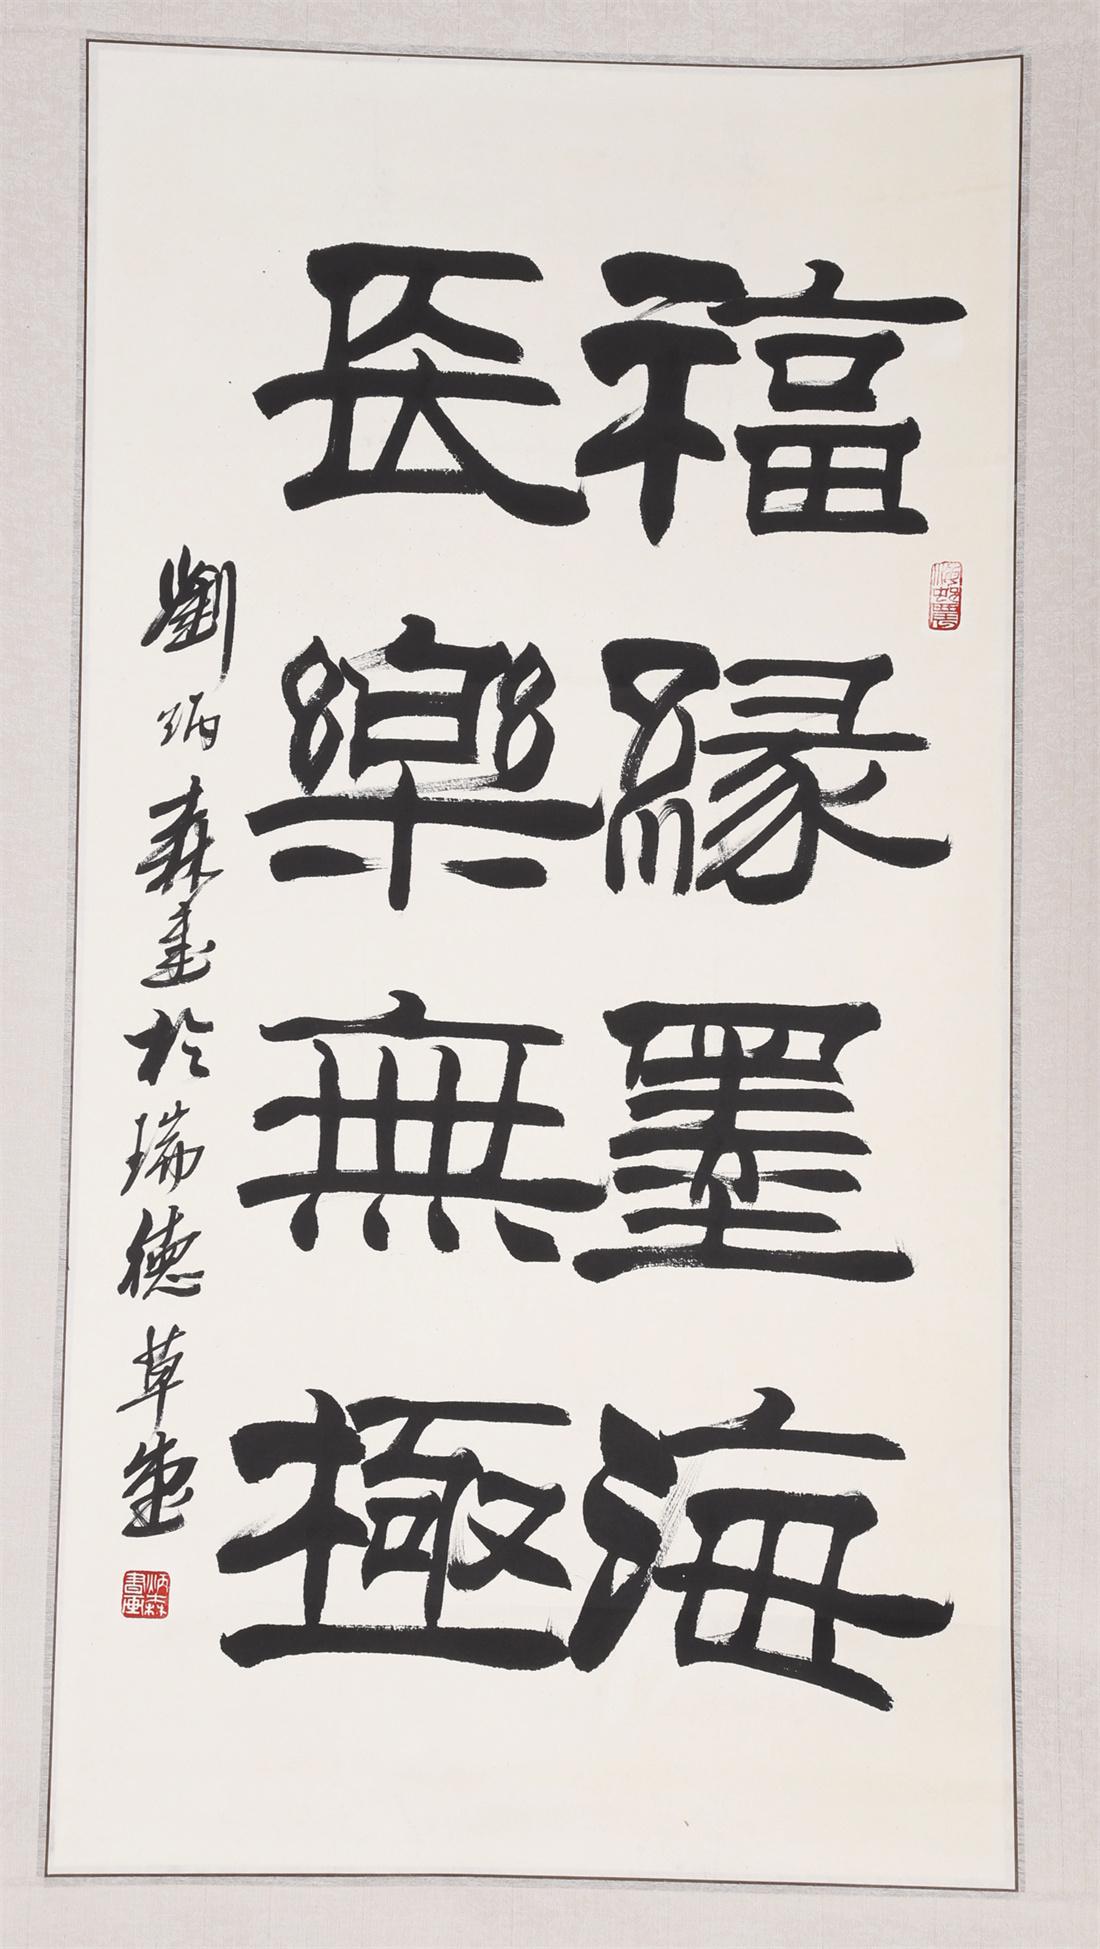 福緣墨海
長樂無極
劉炳森書於瑞德草堂
炳森書画